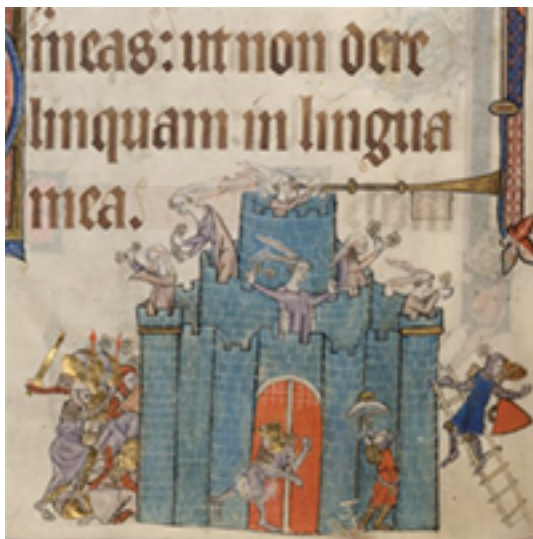 meas: ut non dere
linquam in lingua
mea.